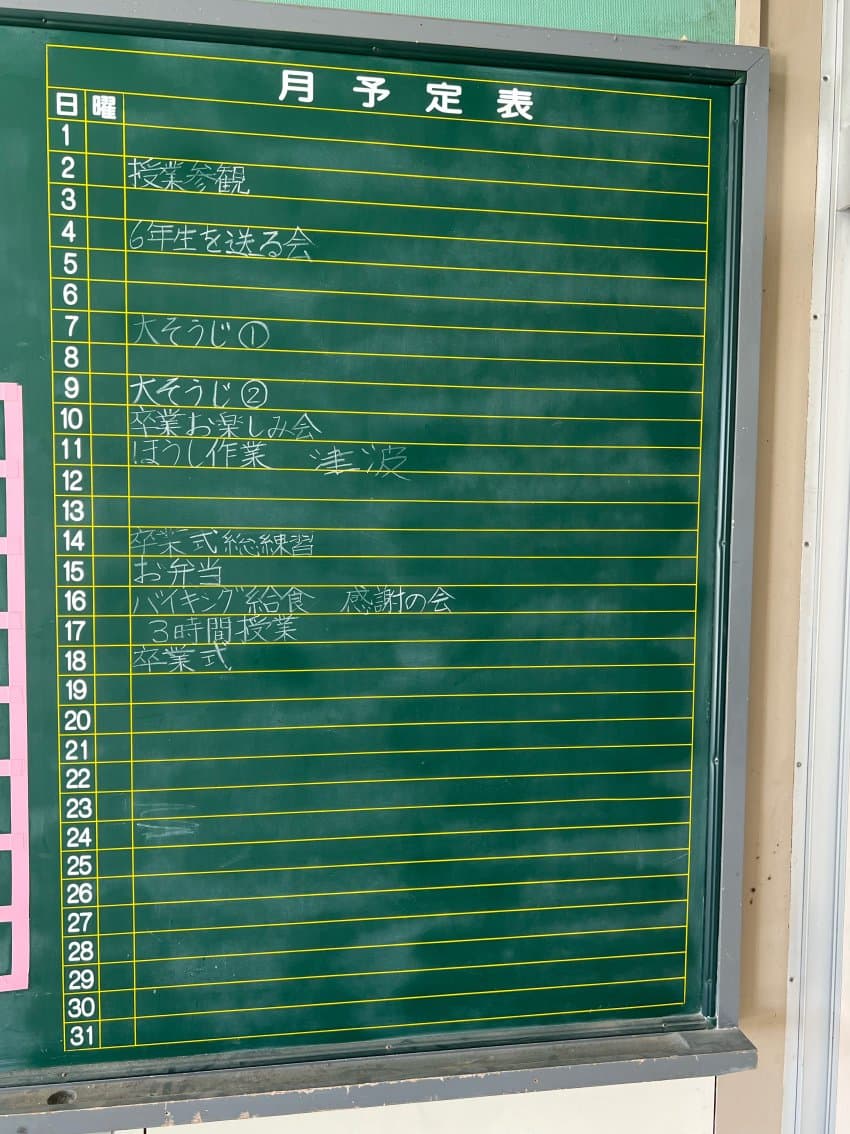 月予定表
日 曜
1
2 授業参観
3
4 6年生を送る会
5
6
7 大そうじ①
8
9 大そうじ②
10 卒業お楽しみ会
11 ほうし作業 津波
12
13
14 卒業式総練習
15 お弁当
16 バイキング給食 感謝の会
17 3時間授業
18 卒業式
19
20
21
22
23
24
25
26
27
28
29
30
31